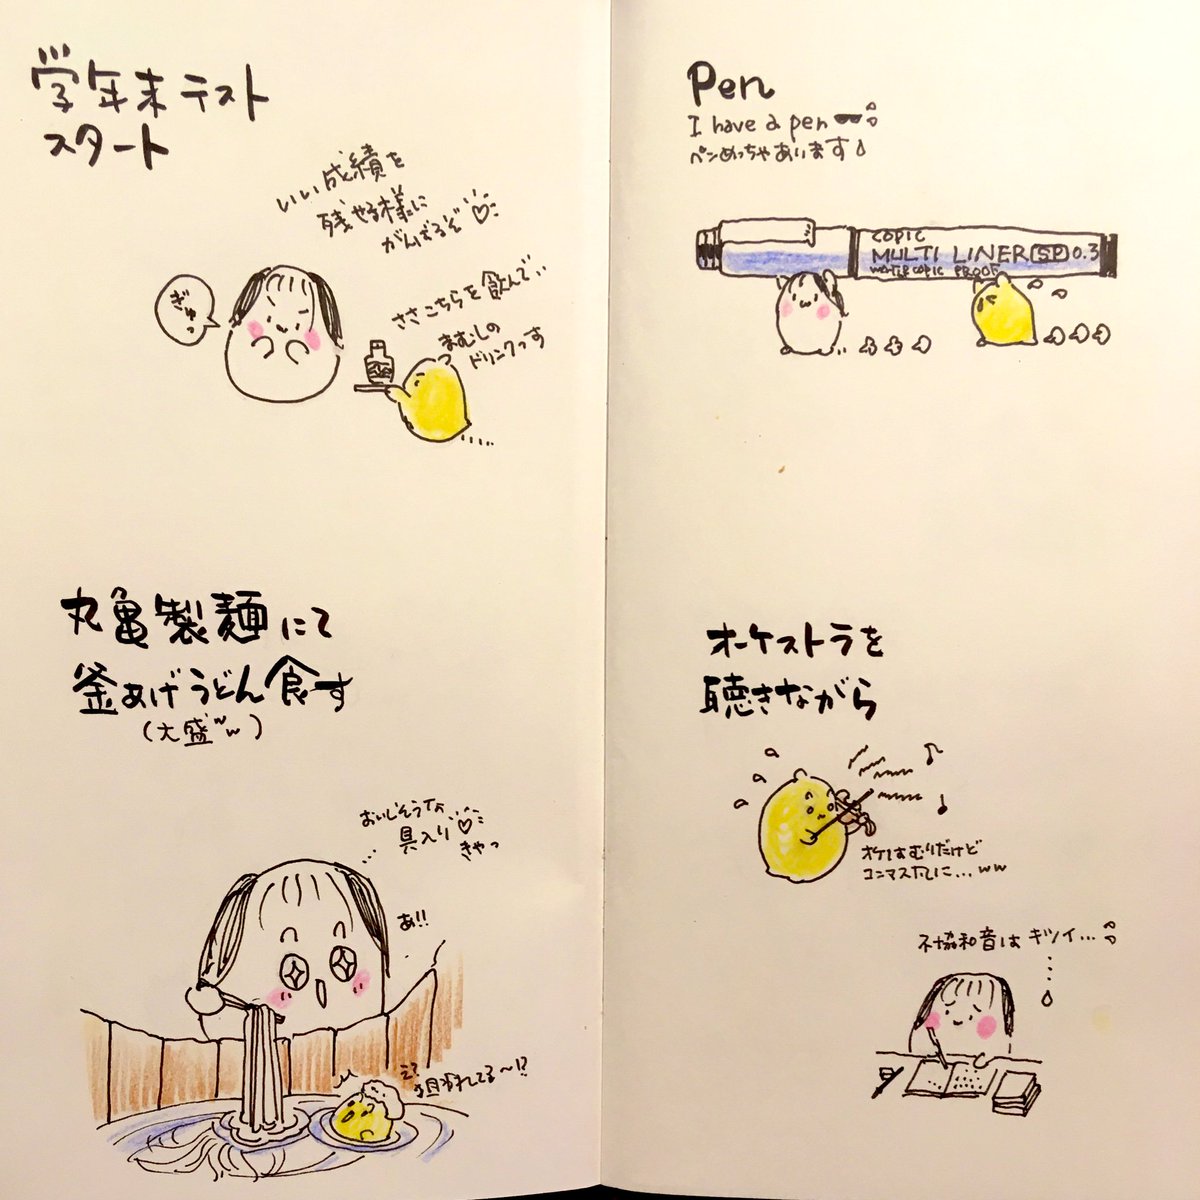 学年末テスト
スタート
いい成績を
残せる様に
がんばるぞ♡
ぎゅっ
ささこちらを飲んで..
まむしの
ドリンクっす
丸亀製麺にて
釜あげうどん食す
(大盛〜w)
おいしそうな...
具入り♡
きゃっ
あ!!
え?
狙われてる〜!?
Pen
I have a pen
ペンめっちゃあります
COPIC
MULTI LINER SP 0.3
PROOF
オーケストラを
聴きながら
オケはむりだけど
コンマス風に...ww
不協和音はキツイ...